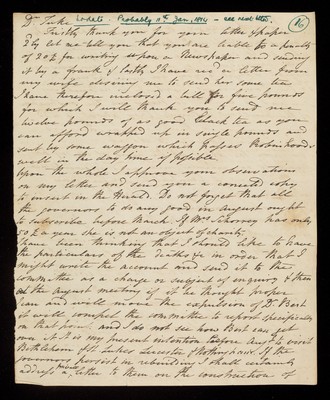 D. Tuke
No date. Probably 11th Jan. 1814 - see next letter.
16
Firstly thank you for your letter & paper
2ly let me tell you that you are liable to a penalty
of 20£ for writing upon a Newspaper and sending
it by a frank & lastly I have in a letter from
my wife desired me to send her some tea
I have therefore inclosed a bill for five pounds
for which I will thank you to send me
twelve pounds of as good black tea as you
can afford wrapped up in single pounds and
sent by some waggon which passes Robinhoods
well in the day time if possible.
Upon the whole I approve your observations
on my letter and send you a corrected copy
to insert in the Herald. Do not forget that all
the governors to do any good in August ought
to subscribe before March. If Mrs Schorey has only
50£ a year she is not an object of charity.
I have been thinking that I should like to have
the particulars of the deaths &c in order that I
might write the account and send it to the
committee as a charge or subject of enquiry & then
at the August meeting if it be thought proper
I can and will move the expulsion of Dr. Best
it will compel the committee to report specifically
on that point, and I do not see how Best can get
over it. It is my present intention before Augt to visit
Bethlehem St Lukes Leicester & Nottingham. If the
governors persist in rebuilding I shall certainly
address a letter to them on the construction of